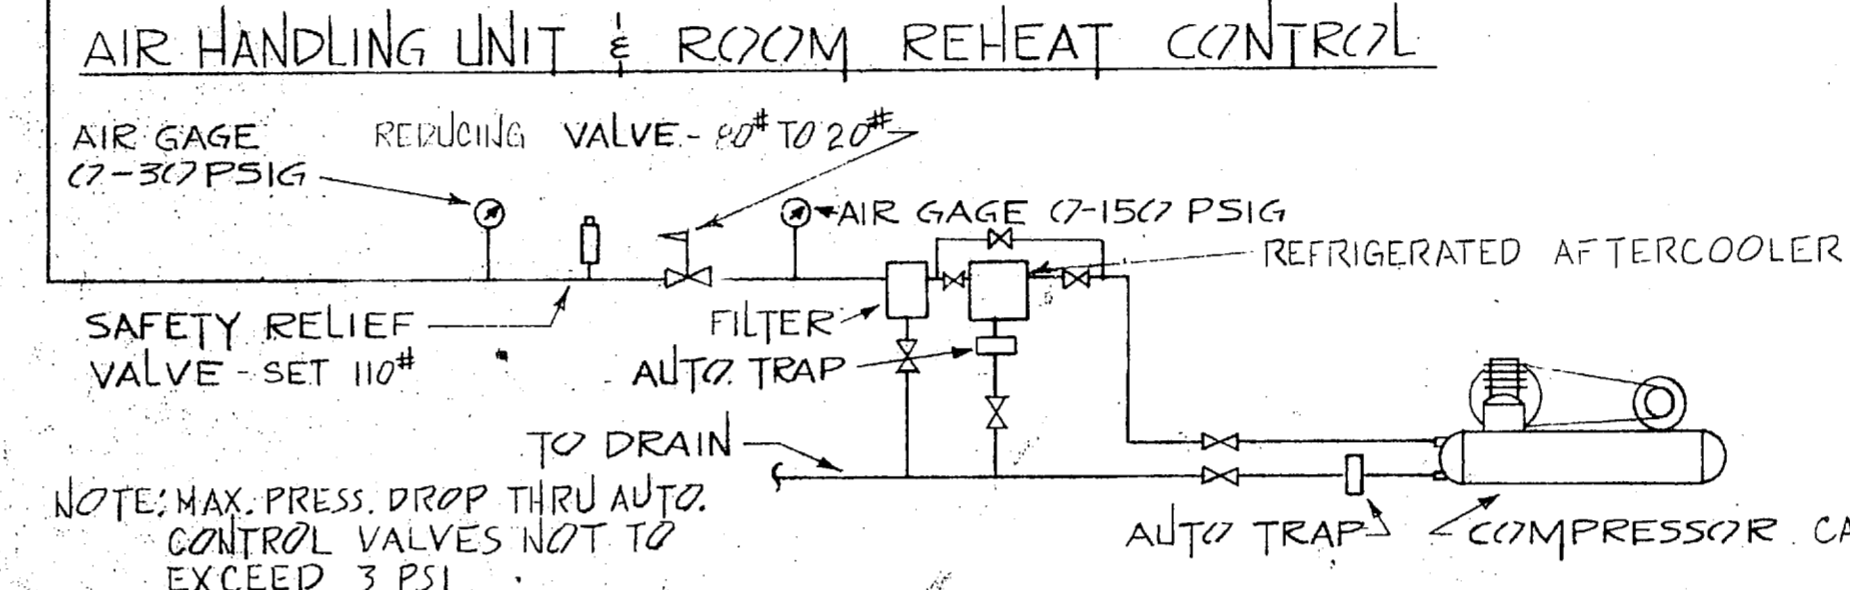 AIR HANDLING UNIT & ROOM REHEAT CONTROL
AIR GAGE
0-30 PSIG
REDUCING VALVE - 80# TO 20#
AIR GAGE 0-150 PSIG
REFRIGERATED AFTERCOOLER
SAFETY RELIEF
VALVE - SET 110#
FILTER
AUTO. TRAP
TO DRAIN
NOTE: MAX. PRESS. DROP THRU AUTO.
CONTROL VALVES NOT TO
EXCEED 3 PSI
AUTO TRAP
COMPRESSOR CA